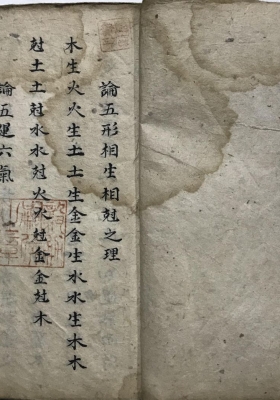 論五形相生相尅之理
木生火火生土土生金金生水水生木木
尅土土尅水水尅火火尅金金尅木
論五運六氣